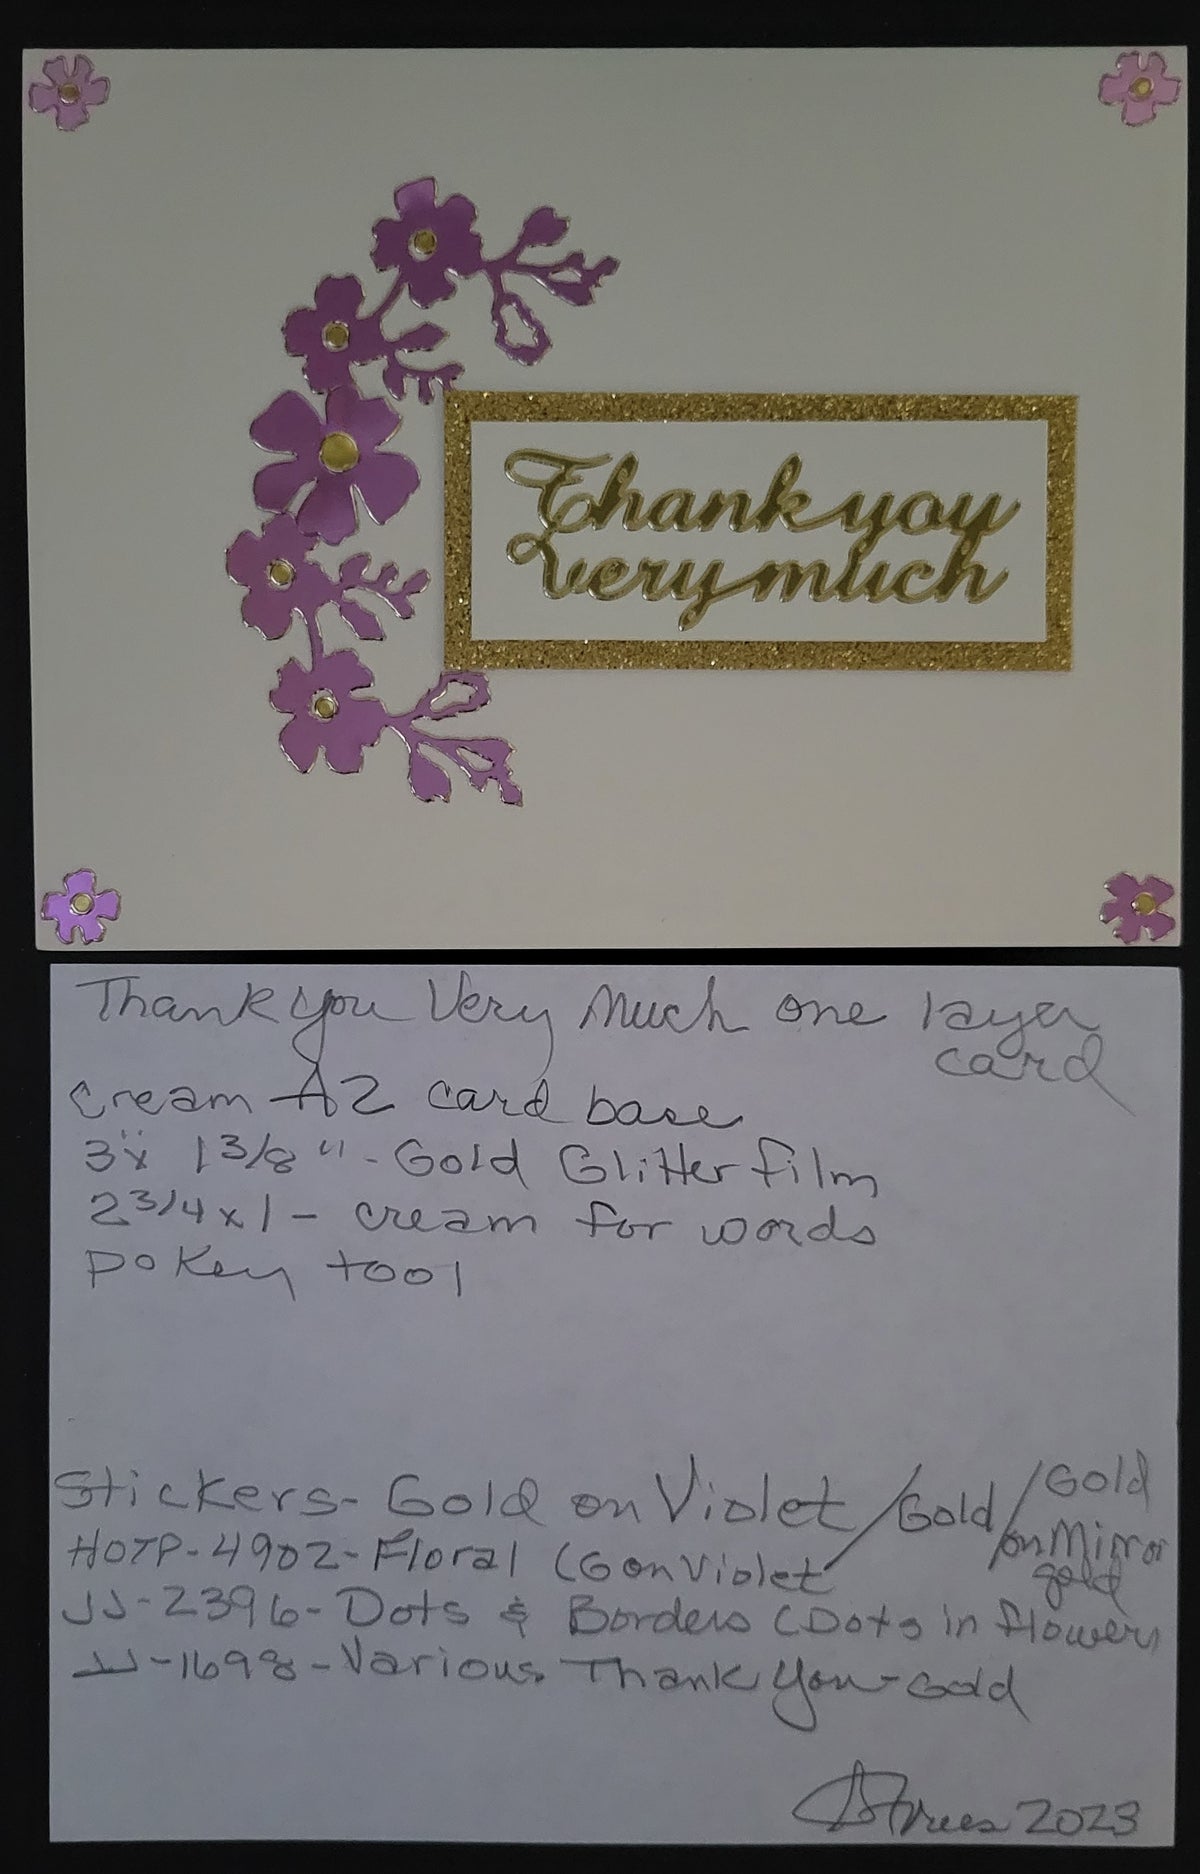 Thank you
very much
Thank you Very Much one layer
card
cream A2 card base
3"x 1 3/8" - Gold Glitter film
2 3/4 x 1 - cream for words
pokey tool
Stickers - Gold on Violet / Gold / Gold
on Mirror
gold
HOTP-4902-Floral (G on Violet
JJ-2396-Dots & Borders (Dots in flowers
JJ-1698-Various Thank You-Gold
2023